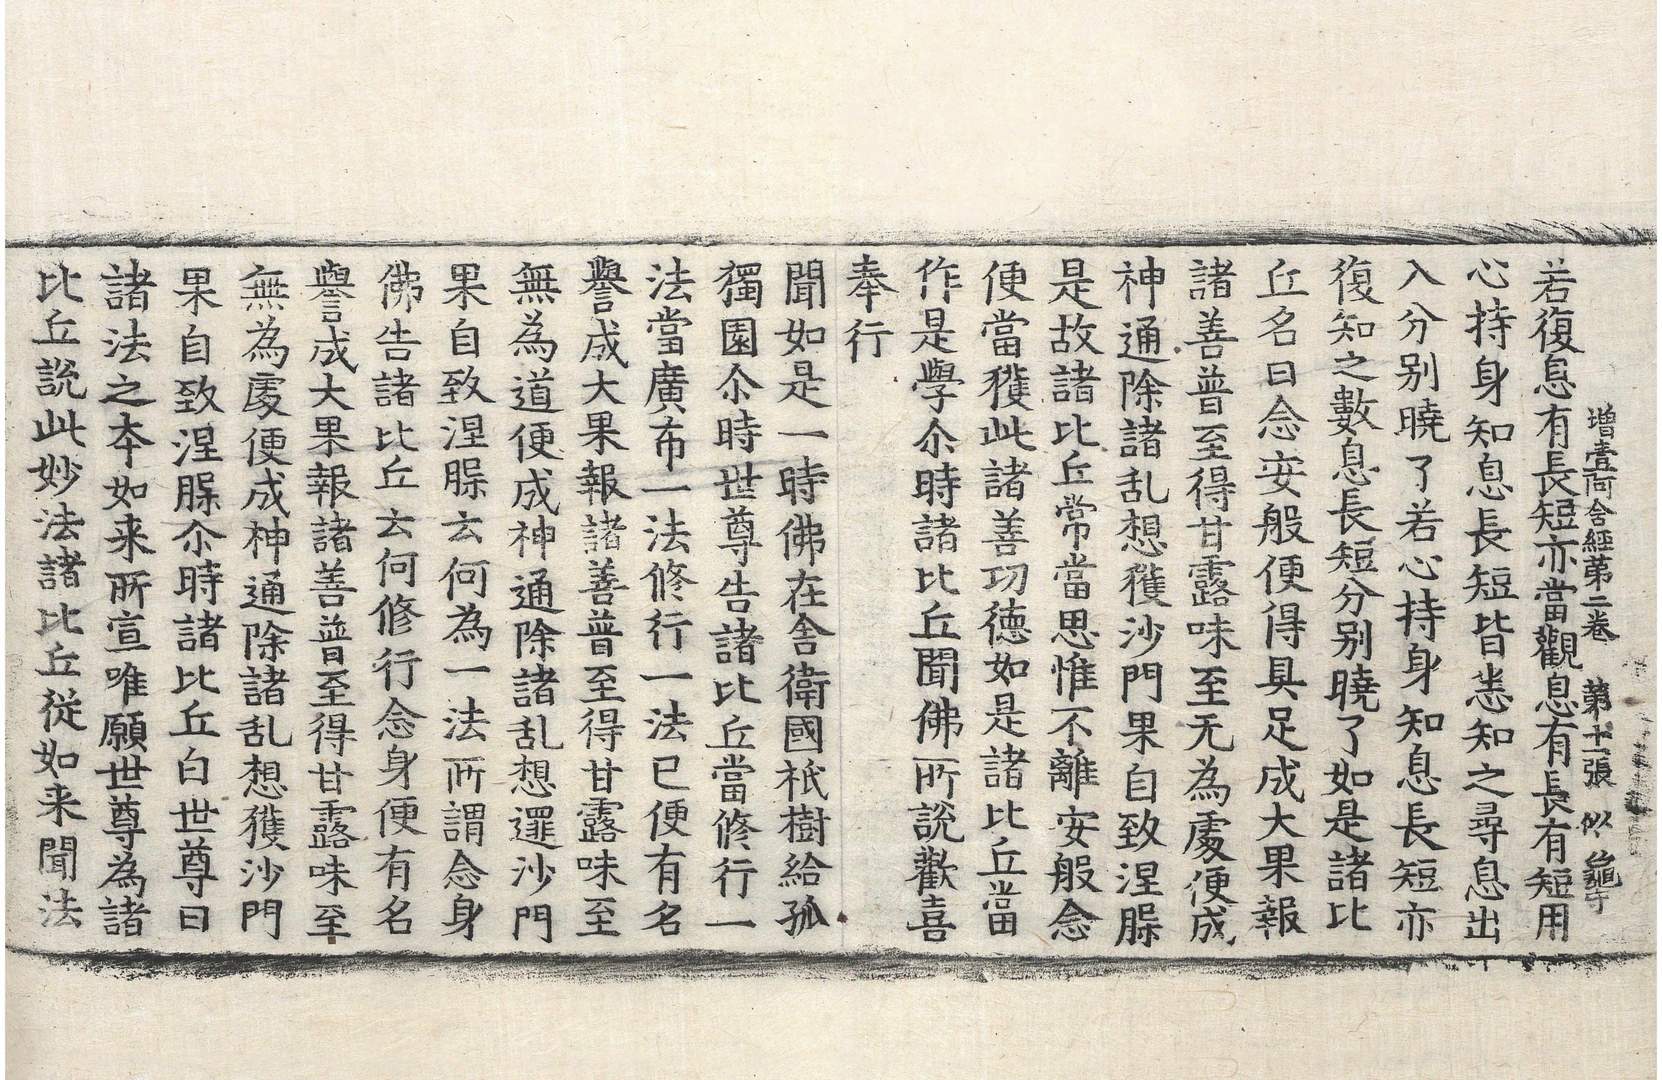 增壹阿含經第二卷 第十一張 似 龜寺
若復息有長短亦當觀息有長有短用
心持身知息長短皆悉知之尋息出
入分别曉了若心持身知息長短亦
復知之數息長短分别曉了如是諸比
丘名曰念安般便得具足成大果報
諸善普至得甘露味至无為處便成
神通除諸乱想獲沙門果自致涅脲
是故諸比丘常當思惟不離安般念
便當獲此諸善功德如是諸比丘當
作是學尒時諸比丘聞佛所説歡喜
奉行
聞如是一時佛在舍衛國祇樹給孤
獨園尒時世尊告諸比丘當修行一
法當廣布一法修行一法已便有名
譽成大果報諸善普至得甘露味至
無為道便成神通除諸乱想逮沙門
果自致涅脲云何為一法所謂念身
佛告諸比丘云何修行念身便有名
譽成大果報諸善普至得甘露味至
無為處便成神通除諸乱想獲沙門
果自致涅脲尒時諸比丘白世尊曰
諸法之本如来所宣唯願世尊為諸
比丘説此妙法諸比丘従如来聞法